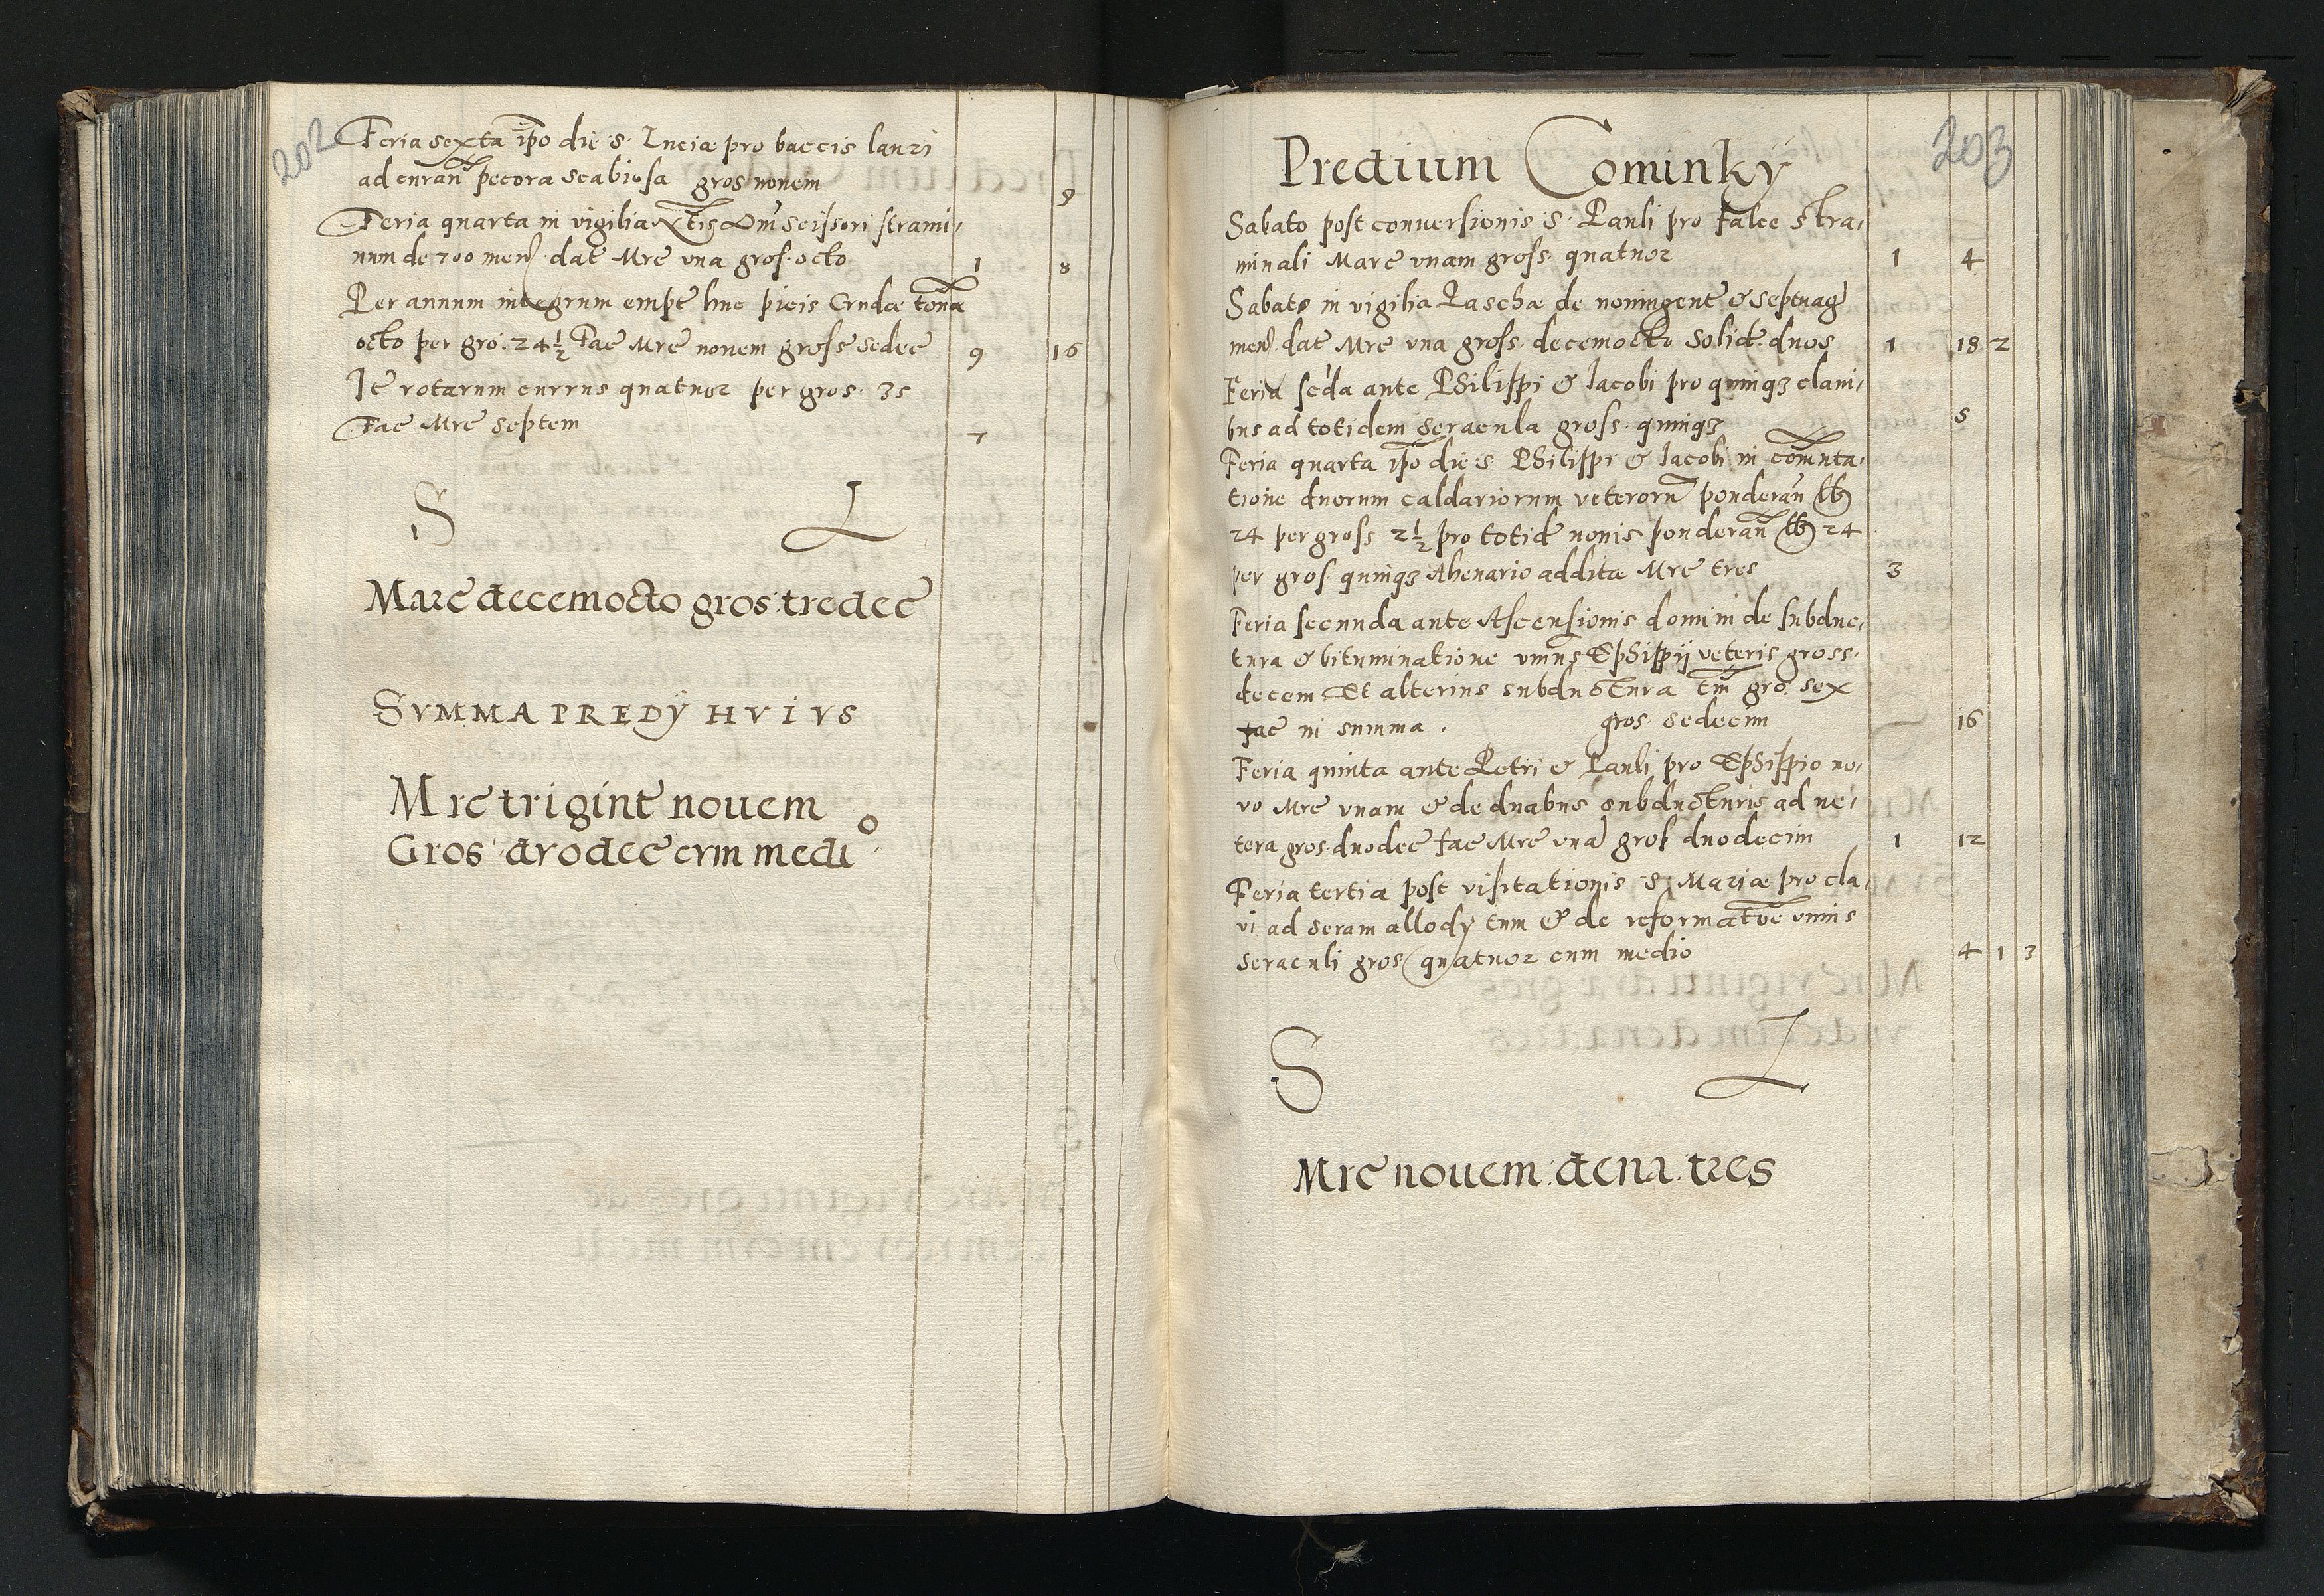 202
Feria sexta ipo die s. Luciæ pro baccis lauri
ad curan pecora scabiosa gros nouem 9
Feria quarta in vigilia Xtis Dni scissori strami,
num de 700 men dat Mrc vna gros. octo 1 8
Per annum integrum empt huc picis Crudæ tona
octo per gro. 24 1/2 Fac Mrc nouem gross sedec 9 16
It rotarum currus quatuor per gros. 35
Fac Mrc septem 7
S L
Marc decemocto gros. tredec
SVMMA PREDY HVIVS
Mrc trigint nouem
Gros. dvodec cvm medio
203
Predium Cominky
Sabato post conuersionis s. Pauli pro falce stra,
minali Marc vnam gross. quatuor 1 4
Sabato in vigilia Paschæ de noningent & septuag
men. dat Mrc vna gross. decemocto solid. duos 1 18 2
Feria scda ante Philippi & Iacobi pro quinqz claui,
bus ad totidem seracula gross. quinqz 5
Feria quarta ipo die s Philippi & Iacobi in comuta,
tione duorum caldariorum veteroru ponderan lb
24 per gross 2 1/2 pro totid nouis ponderan lb 24
per gros. quinqz Ahenario addita Mrc tres 3
Feria secunda ante Ascensionis domini de subduc,
tura & bituminatione vnius Ephippij veteris gross.
decem Et alterius subductura tm gro. sex
fac in summa . gros. sedecim — 16
Feria quinta ante Petri & Pauli pro Ephippio no,
vo Mrc vnam & de duabus subducturis ad ve,
tera gros. duodec fac Mrc vna gros duodecim 1 12
Feria tertia post visitationis s. Mariæ pro cla,
vi ad seram allody tum & de reformatoe vnius
seraculi gros quatuor cum medio 4 1 3
S L
Mrc nouem. dena. tres